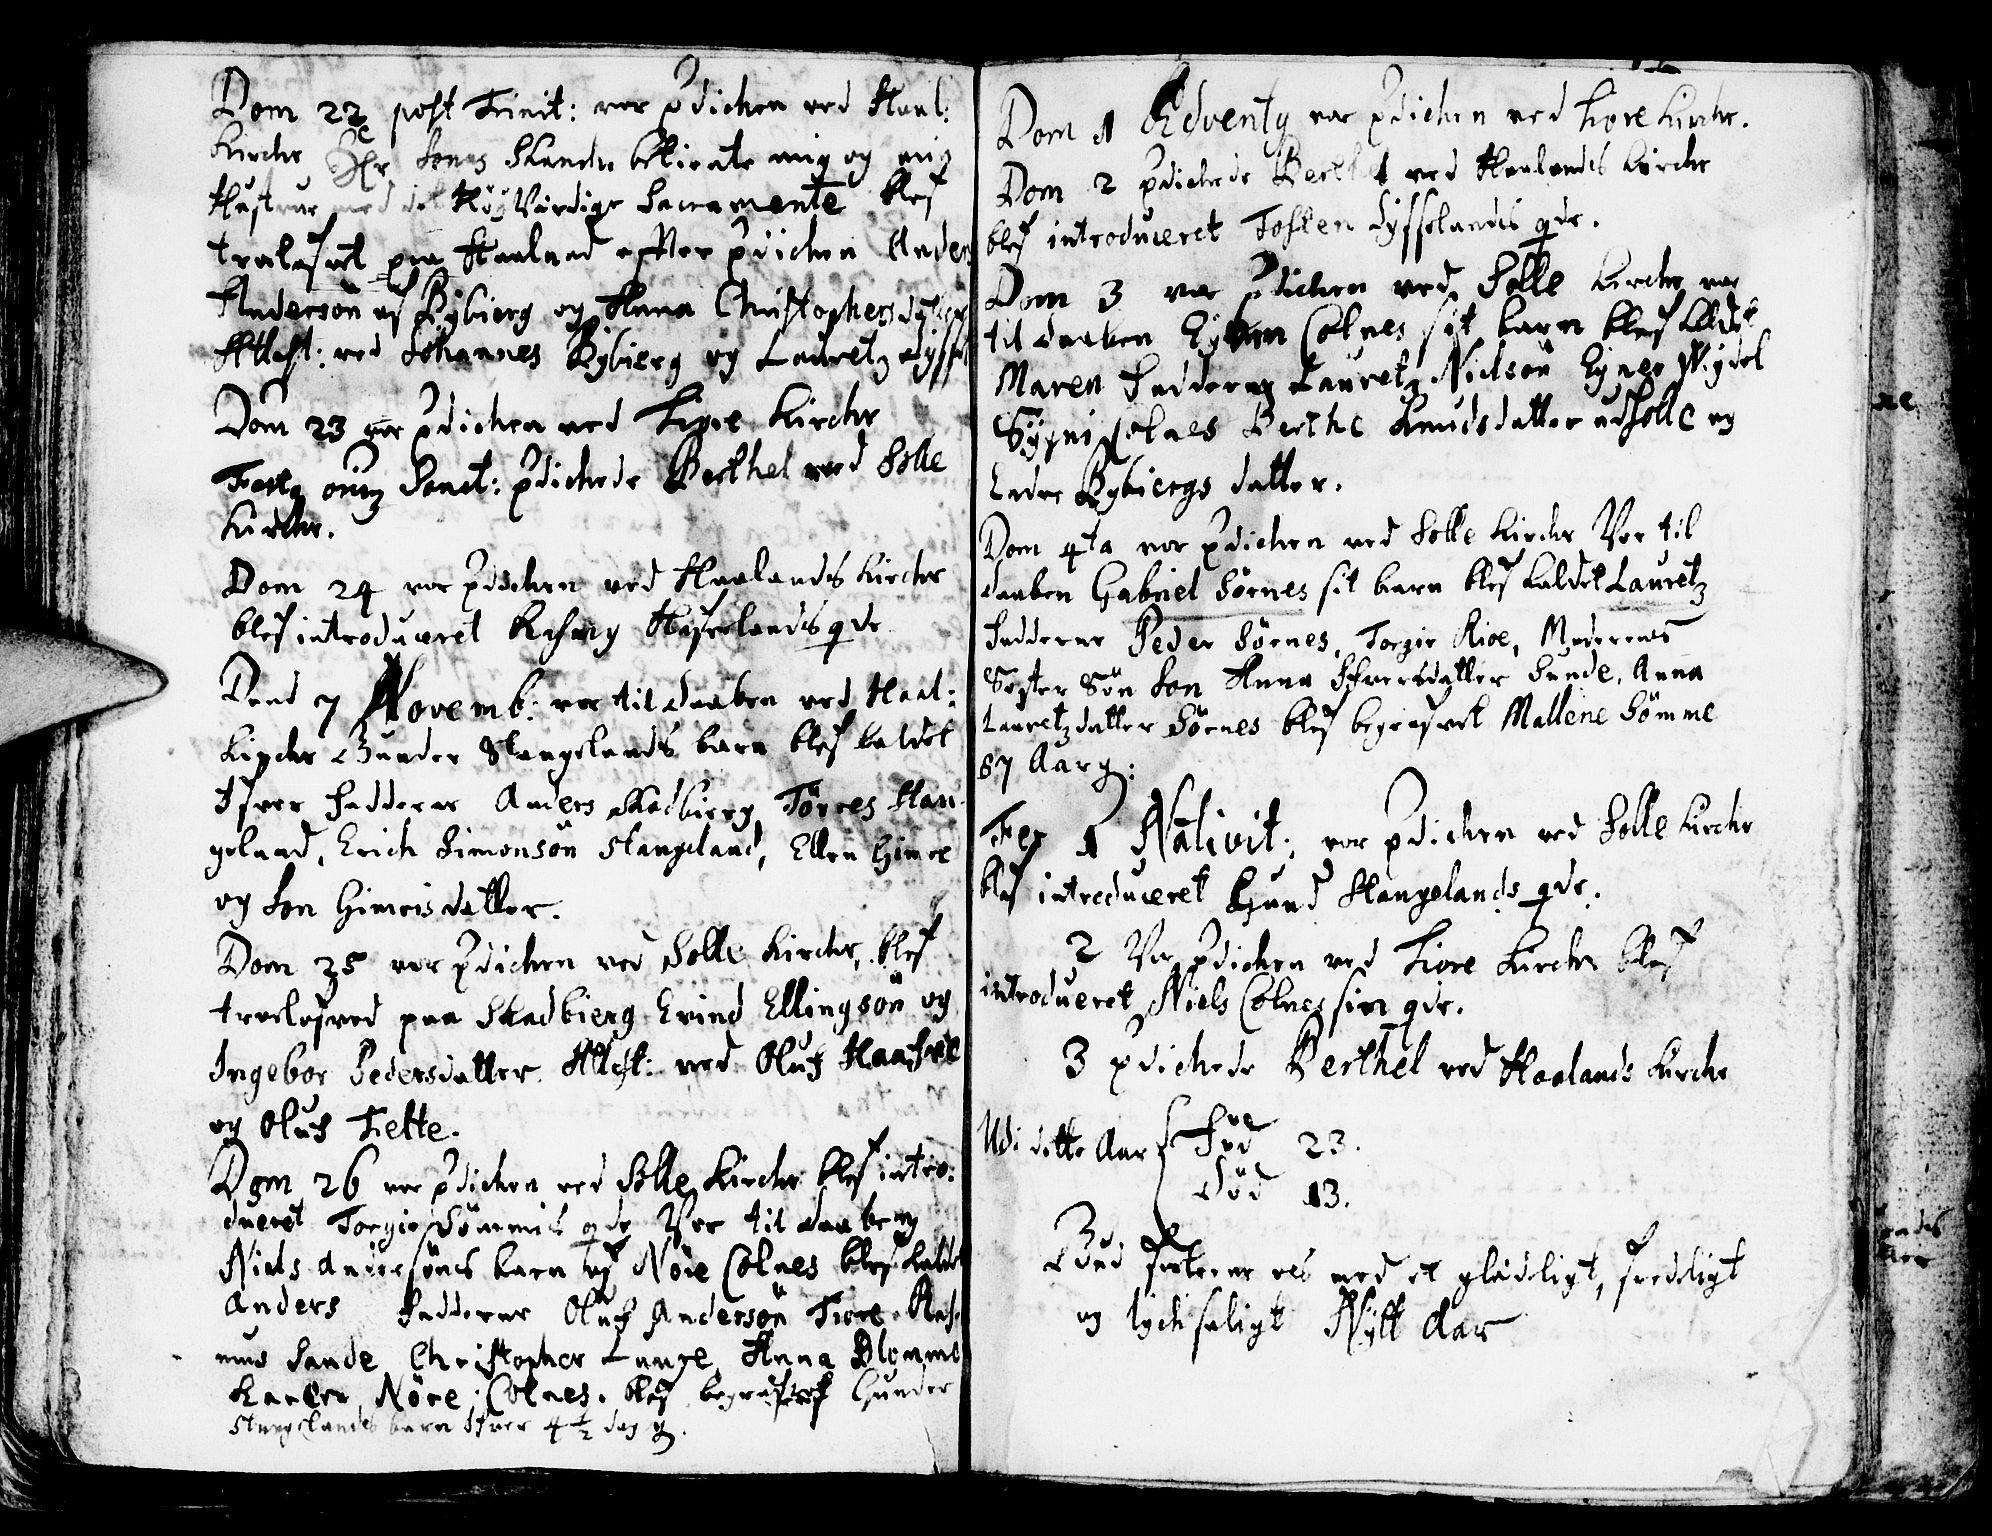 Dom 22 post Trinit: var Pdichen ved Haal:
Kirche Hr Jonas Skanche betiente mig og mig
Hustrue med det HögVürdige Sacramente blef
trolofvet paa Haaland efter Pdichen Anders
Andersön af Rybierg og Anna Christophersdatter
Attest: ved Johannes Rybierg og Lauretz
Dom 23 var Pdichen ved Tiore Kirche
Festg omn Sanct: Pdichede Berthel ved Solle
Kirche.
Dom 24 var Pdichen ved Haalands Kirche
blef introduceret Rasmg Hafselands qde
Dend 7 Novemb: var til daaben ved Haal:
Kirche Gunder Stangelands barn blef kaldet
Ifver Faddere Anders Skadbierg, Törres Stan-
geland, Erich Simonsön Stangeland, Ellen Gimre
og Jon Gimris datter.
Dom 25 var Pdichen ved Solle Kirche, blef
trolofved paa Skadbierg Evind Ellingsön og
Ingebor Pedersdatter Attest: ved Oluf Haafve
og Oluf Tiette.
Dom 26 var Pdichen ved Solle Kirche blef intro:
duceret Torgier Sömmis qde Var til daaben
Niels Andersöns barn af Nöre Colnes blef kaldet
Anders Faddere Oluf Andersön Tiore Ras-
mus Sande Christopher Lange Anna Blomme
Karen Nöre Colnes. blef begrafvet Gunder
Stangelands barn Ifver 4 1/2 dag g.
Dom 1 Adventg var Pdichen ved Tiore Kirche.
Dom 2 Pdichede Berthel ved Haalands Kirche
blef introduceret Tosten Lysselands qde.
Dom 3 var Pdichen ved Solle Kirche var
til daaben Colnes sit barn blef kaldet
Maren Faddere Lauretz Nielsön Eyner Mydel
Sygni Colnes Berthe Knudsdatter Solle og
Endre Rybiergs datter.
Dom 4ta var Pdichen ved Solle Kirche Var til
daaben Gabriel Sörnes sit barn blef kaldet Lauretz
Faddere Peder Sörnes, Torgir Rioe, Moderens
Söster Sön Jon Anna Ifversdatter Sunde, Anna
Lauretzdatter Sörnes blef begrafvet Mallene Sömme
87 Aar g:
Fer 1 Nativit: var Pdichen ved Solle Kirche
blef introduceret Gund Stangelands qde.
2 Var Pdichen ved Tiore Kirche blef
introduceret Niels Colnes sin qde.
3 Pdichede Berthel ved Haalands Kirche
Udi dette Aar Föd 23.
Död 13.
Gud os med et glædeligt, fredeligt
og lychsaligt Nytt Aar